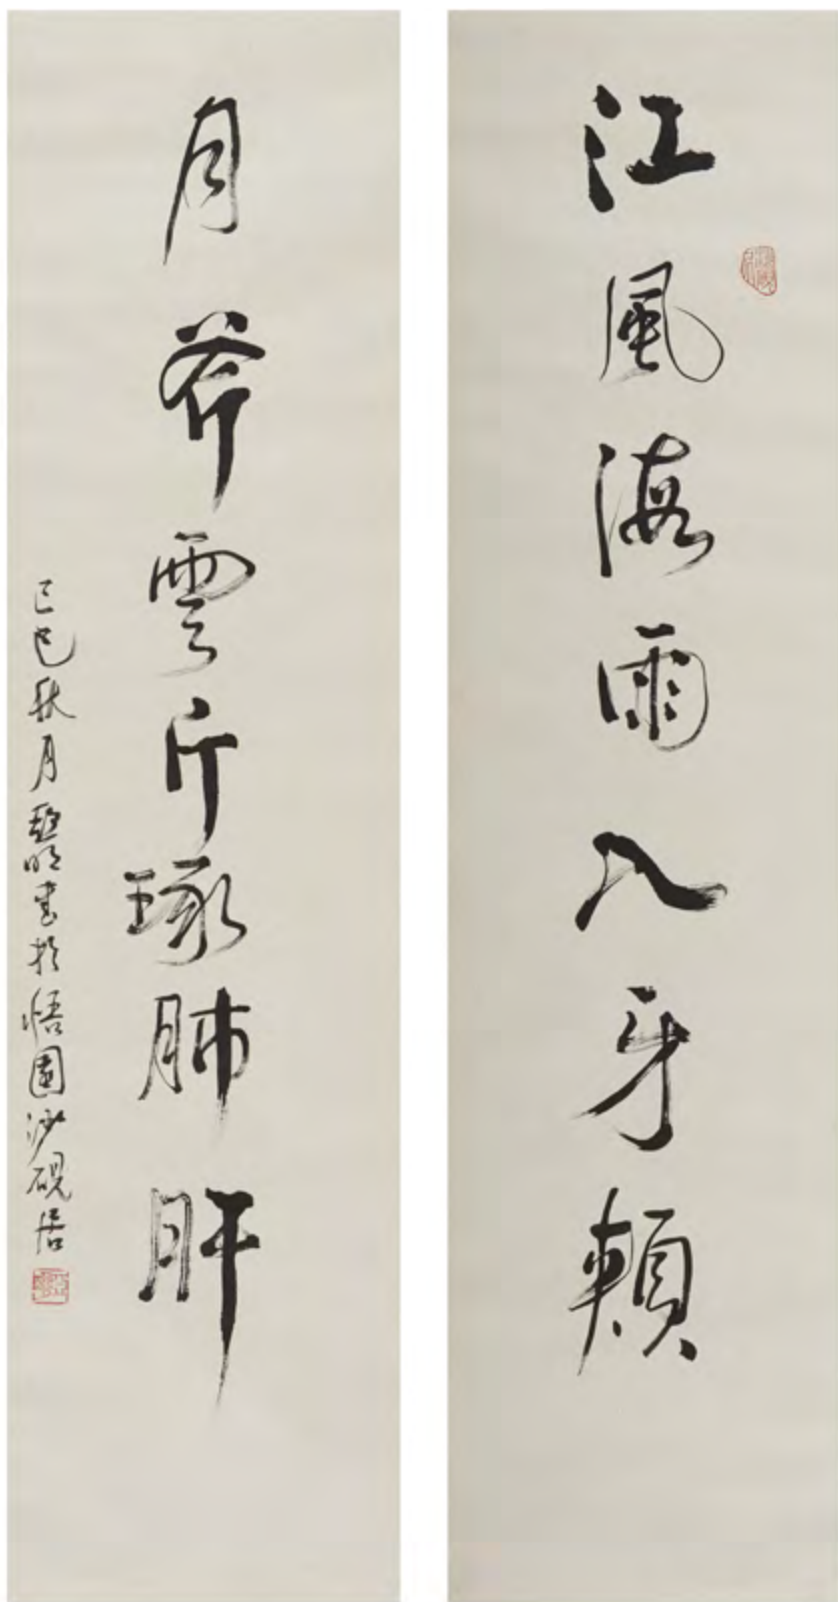 江風海雨入牙頰
月斧雲斤琢肺肝
己巳秋月亞明書於悟園沙硯居